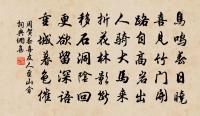 鳥鳴春日曉
喜見竹門開
路自高岩出
人騎大馬來
折花林影斷
移石洞陰回
更欲留深語
重城暮色催
周賀春喜友人至山舍
詞典網